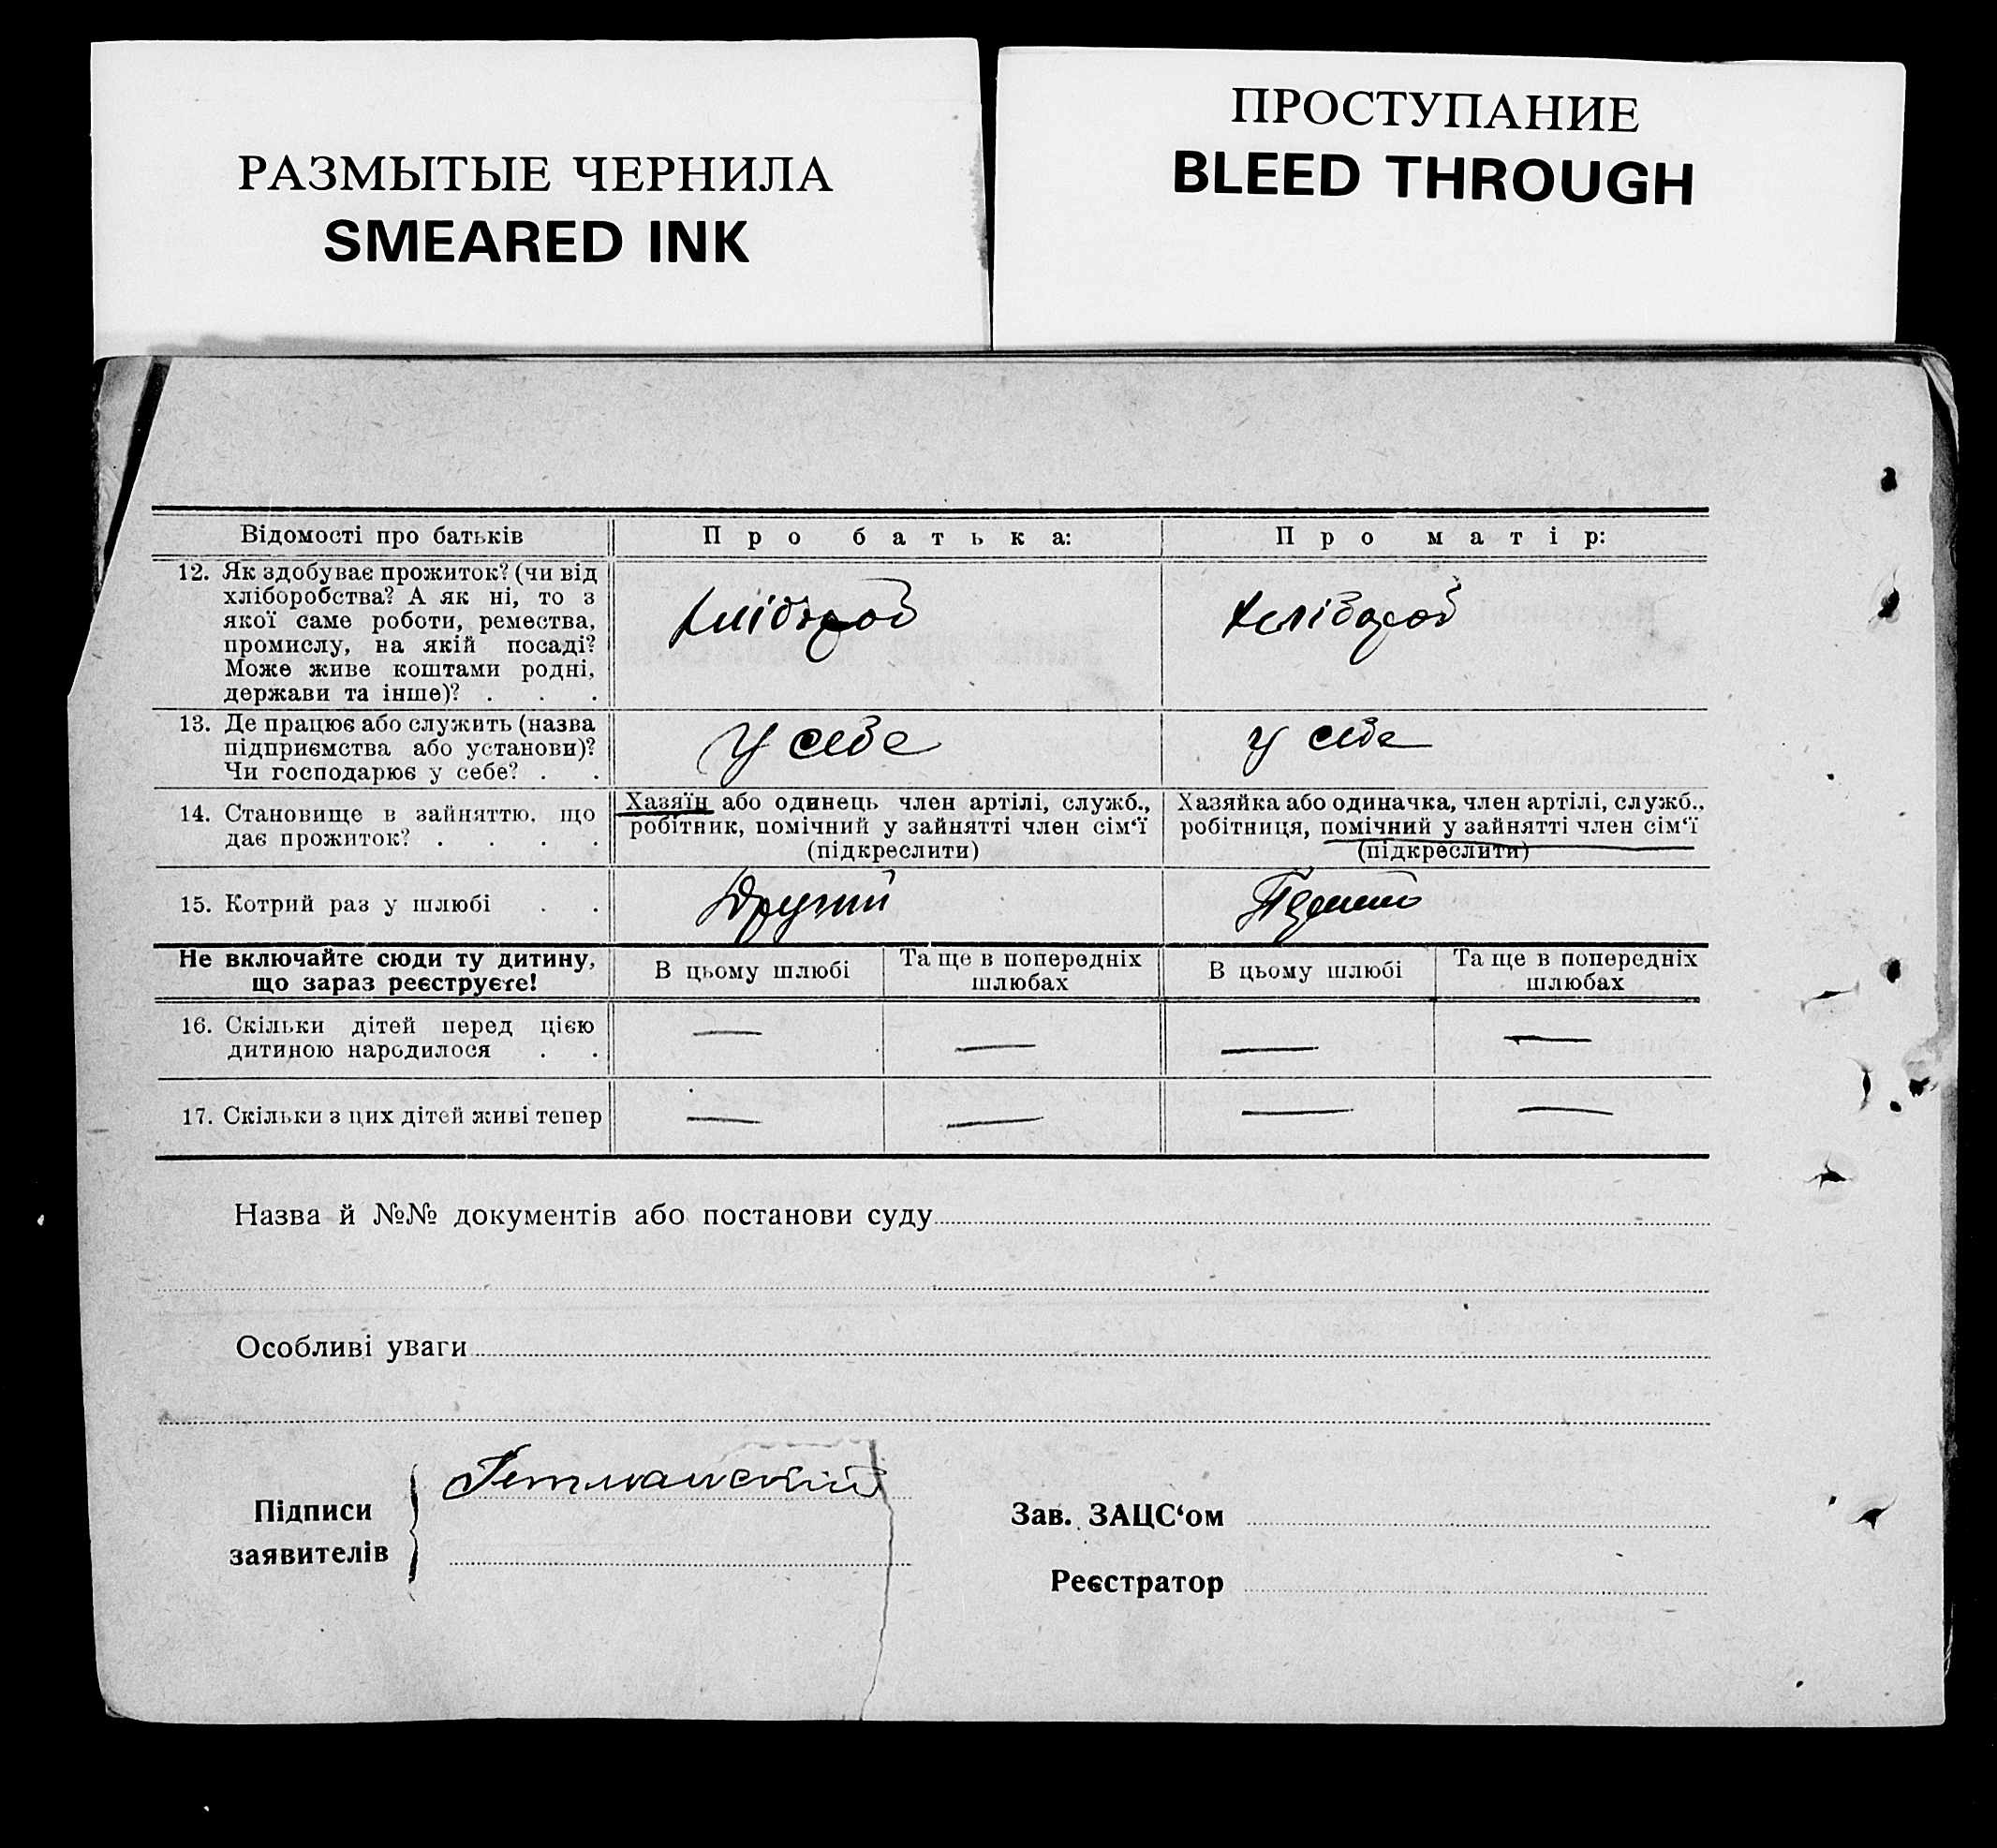 РАЗМЫТЫЕ ЧЕРНИЛА
SMEARED INK
ПРОСТУПАНИЕ
BLEED THROUGH
Відомості про батьків
Про батька:
Про матір:
12. Як здобуває прожиток? (чи від
хліборобства? А як ні, то з
якої саме роботи, ремества,
промислу, на якій посаді?
Може живе коштами родні,
держави та інше)? . . .
хлібороб
хлібороб
13. Де працює або служить (назва
підприємства або установи)?
Чи господарює у себе? . .
У себе
у себе
14. Становище в зайняттю, що
дає прожиток? . . . .
Хазяїн або одинець член артілі, служб.,
робітник, помічний у зайнятті член сім‘ї
(підкреслити)
Хазяйка або одиначка, член артілі, служб.,
робітниця, помічний у зайнятті член сім‘ї
(підкреслити)
15. Котрий раз у шлюбі . .
Другий
Не включайте сюди ту дитину,
що зараз реєструєте!
В цьому шлюбі
Та ще в попередніх
шлюбах
В цьому шлюбі
Та ще в попередніх
шлюбах
16. Скільки дітей перед цією
дитиною народилося . .
— — — —
17. Скільки з цих дітей живі тепер
— — — —
Назва й №№ документів або постанови суду
Особливі уваги
Підписи
заявителів
Гетманский
Зав. ЗАЦС‘ом
Реєстратор